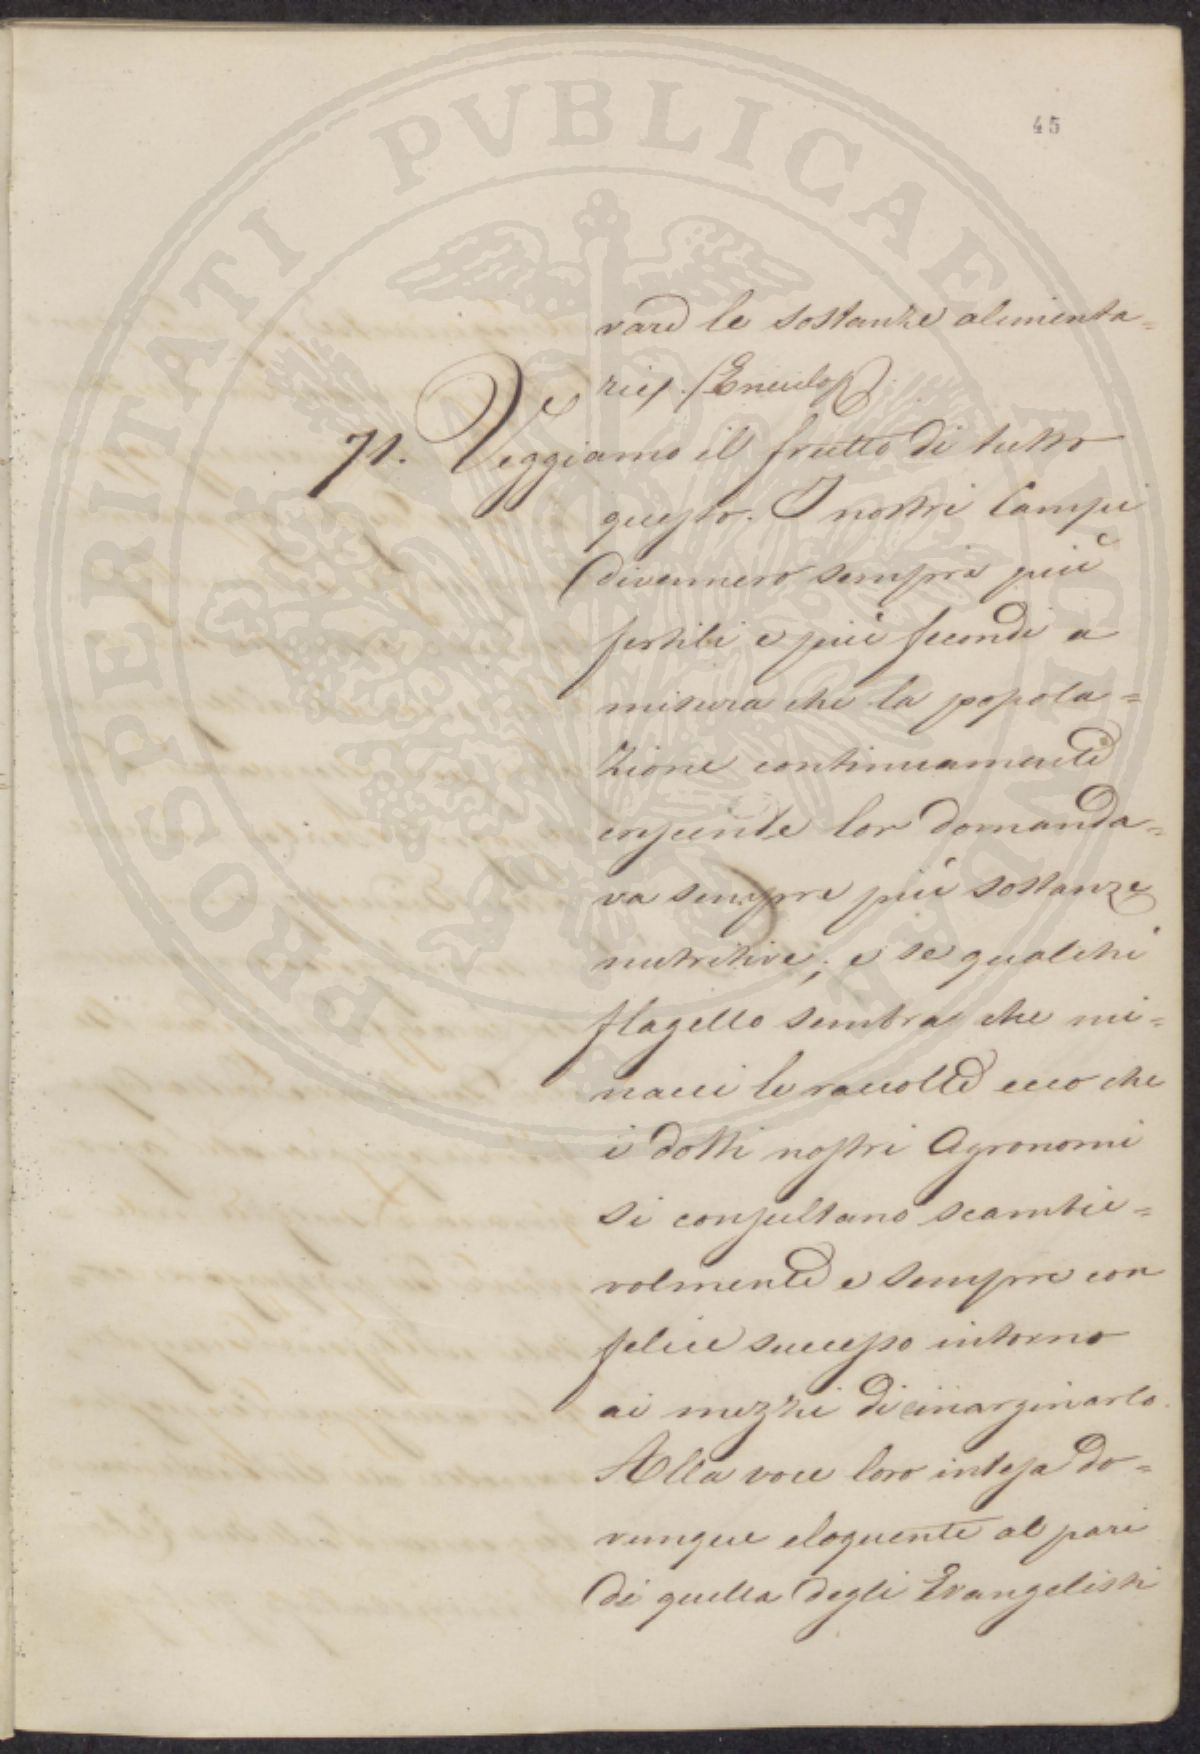 45
PROSPERITATI PUBLICAE AUGENDAE
vare le sostanze alimenta=
rie/. (Enciclop)
71. Veggiamo il frutto di tutto
questo. I nostri Campi
divennero sempre più
fertili e più fecondi a
misura che la popola=
zione continuamente
crescente lor domanda=
va sempre più sostanze
nutritive; e se qualche
flagello sembra che mi=
nacci le raccolte ecco che
i dotti nostri Agronomi
si consultano scambie=
volmente e sempre con
felice successo intorno
ai mezzi di inarginarlo.
Alla voce loro intesa do=
vunque eloquente al pari
di quella degli Evangelisti